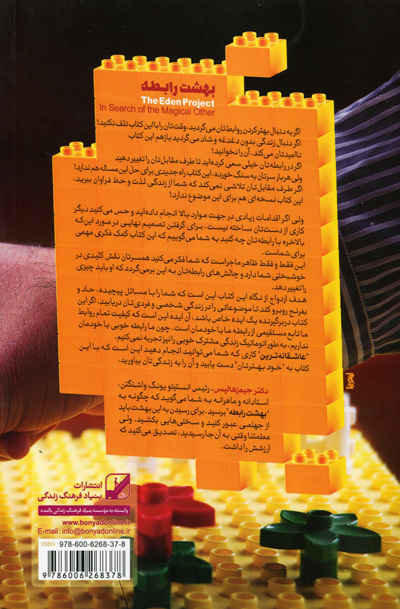 بهشت رابطه
The Eden Project
In Search of the Magical Other
اگر به دنبال بهتر کردن روابط‌تان می‌گردید، وقت‌تان را با این کتاب تلف نکنید!
اگر دنبال زندگی بدون دغدغه و شاد می‌گردید باز هم این کتاب
ناامیدتان می‌کند. آن را نخوانید!
اگر در رابطه‌تان خیلی سعی کرده‌اید تا طرف مقابل‌تان را تغییر دهید
ولی هربار سرتان به سنگ خورده، این کتاب راه جدیدی برای حل این مساله هم ندارد!
اگر طرف مقابل‌تان تلاشی نمی‌کند که شما از زندگی لذت و حظ فراوان ببرید،
این کتاب نسخه‌ای هم برای این موضوع ندارد!
ولی اگر اقدامات زیادی در جهت موارد بالا انجام داده‌اید و حس می‌کنید دیگر
کاری از دست‌تان ساخته نیست، برای گرفتن تصمیم نهایی در مورد این‌که
بالاخره با رابطه‌تان چه کنید به شما می‌گوییم که این کتاب کمک فکری مهمی
برای شماست.
این فقط و فقط ظاهر ماجراست که شما فکر می‌کنید همسرتان نقش کلیدی در
خوشبختی شما دارد و چالش‌های رابطه‌تان به این برمی‌گردد که او باید چیزی
را تغییر دهد.
هدف ازدواج از نگاه این کتاب این است که شما را با مسائل پیچیده، حاد و
بغرنج روبرو کند تا موضوعاتی را در زندگی شخصی و فردی‌تان دریابید. اگر این
کتاب دربرگیرنده یک ایده خاص باشد، آن ایده این است که کیفیت تمام روابط
ما تابع مستقیمی از رابطه ما با خودمان است. چون ما رابطه خوبی با خودمان
نداریم، به طور اتوماتیک زندگی مشترک خوبی را نیز تجربه نمی‌کنیم.
"عاشقانه‌ترین" کاری که شما می‌توانید انجام دهید این است که با این
کتاب به "خود بهترتان" دست یابید و آن را به زندگی‌تان بیاورید.
دکتر جیمز هالیس، رئیس انستیتو یونگ واشنگتن،
استادانه و ماهرانه به شما می‌گوید که چگونه به
"بهشت رابطه" برسید. برای رسیدن به این بهشت باید
از جهنمی عبور کنید و سختی‌هایی بکشید. ولی
مطمئنا وقتی به آن‌جا رسیدید، تصدیق می‌کنید که
ارزشش را داشت.
انتشارات
بنیاد فرهنگ زندگی
وابسته به موسسه بنیاد فرهنگ زندگی بالنده
www.bonyadonline.ir
E-mail : info@bonyadonline.ir
978-600-6268-37-8
9 786006 268378